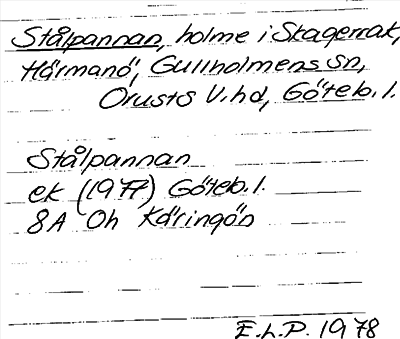 Stålpannan, holme i Skagerrak,
Härmanö, Gullholmens sn,
Orusts V.hd, Göteb. l.
Stålpannan
ek (1977) Göteb. l.
8A Oh Käringön
E.L.P. 1978